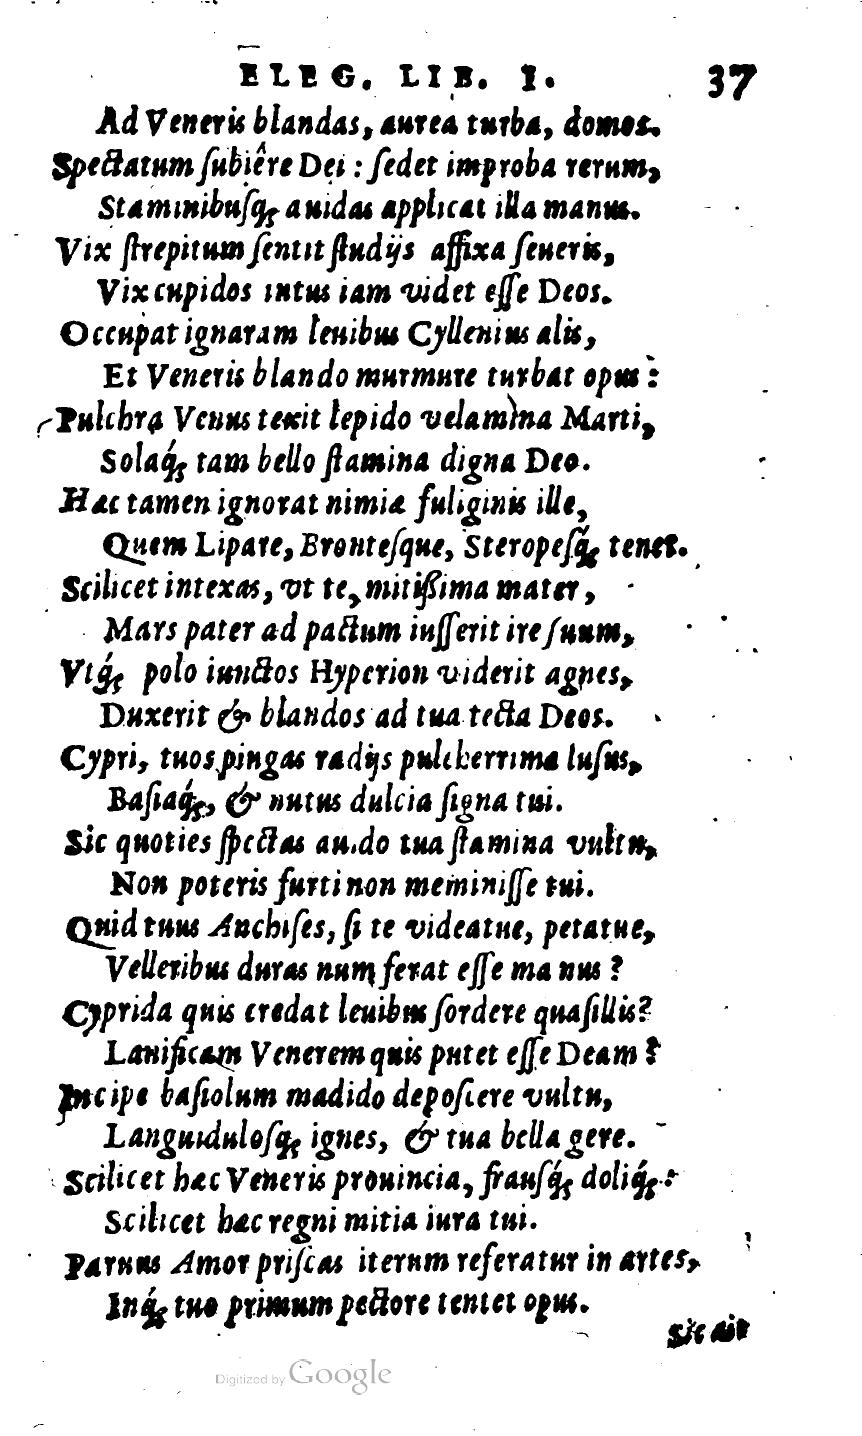 ELEG. LIB. I. 37
Ad Veneris blandas, aurea turba, domos.
Spectatum ſubiêre Dei : ſedet improba rerum,
Staminibuſq́; auidas applicat illa manus.
Vix ſtrepitum ſentit ſtudijs affixa ſeueris,
Vix cupidos intus iam videt eſſe Deos.
Occupat ignaram leuibus Cyllenius alis,
Et Veneris blando murmure turbat opus :
Pulchra Venus texit lepido velamina Marti,
Solaq́; tam bello ſtamina digna Deo.
Hac tamen ignorat nimiæ fuliginis ille,
Quem Lipare, Bronteſque, Steropeſq́; tenet.
Scilicet intexas, vt te, mitißima mater,
Mars pater ad pactum iuſſerit ire ſuum,
Vtq́; polo iunctos Hyperion viderit agnes,
Duxerit & blandos ad tua tecta Deos.
Cypri, tuos pingas radijs pulcherrima luſus,
Baſiaq́;, & nutus dulcia ſigna tui.
Sic quoties ſpectas auido tua ſtamina vultu,
Non poteris furti non meminiſſe tui.
Quid tuus Anchiſes, ſi te videatue, petatue,
Velleribus duras num ferat eſſe manus ?
Cyprida quis credat leuibus ſordere quaſillis?
Lanificam Venerem quis putet eſſe Deam ?
Incipe baſiolum madido depoſcere vultu,
Languiduloſq́; ignes, & tua bella gere.
Scilicet hæc Veneris prouincia, frauſq́; doliq́; :
Scilicet hæc regni mitia iura tui.
Paruus Amor priſcas iterum referatur in artes,
Inq́; tuo primum pectore tentet opus.
Sic ait
Digitized by Google